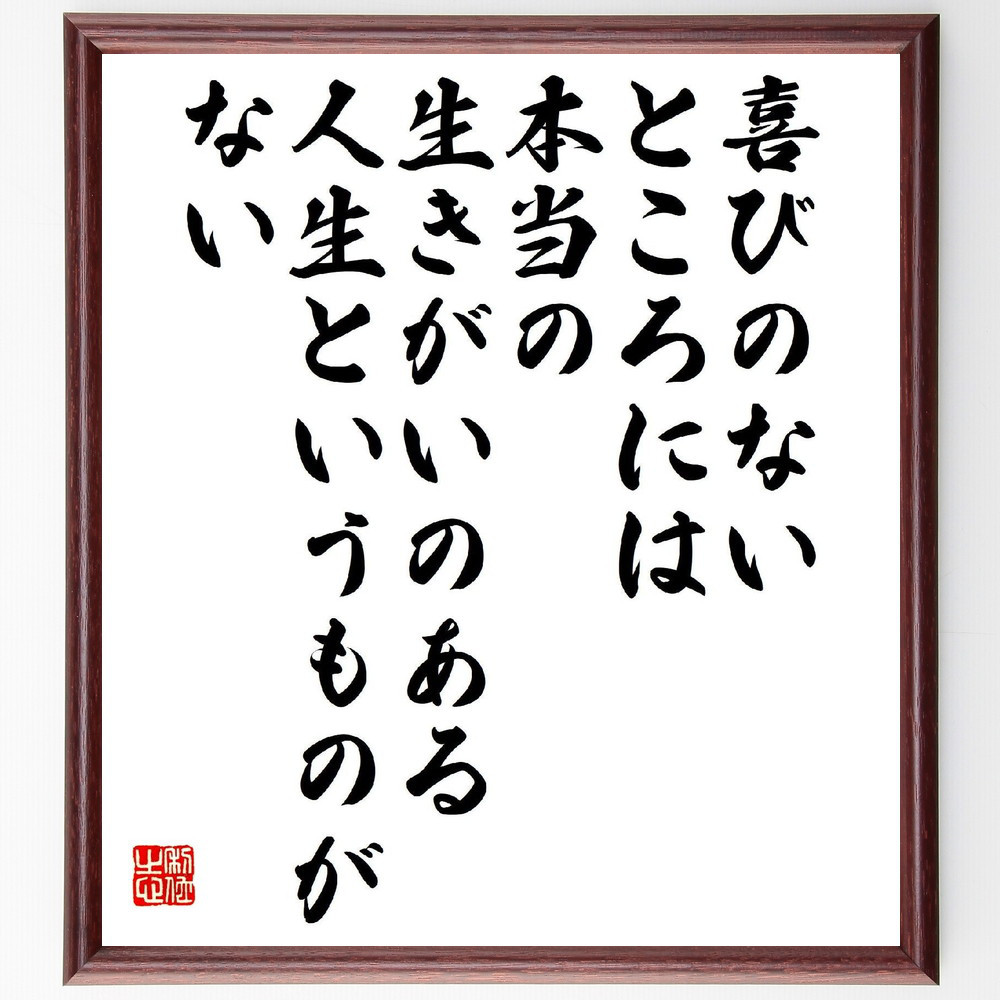 喜びのない
ところには
本当の
生きがいのある
人生というものが
ない